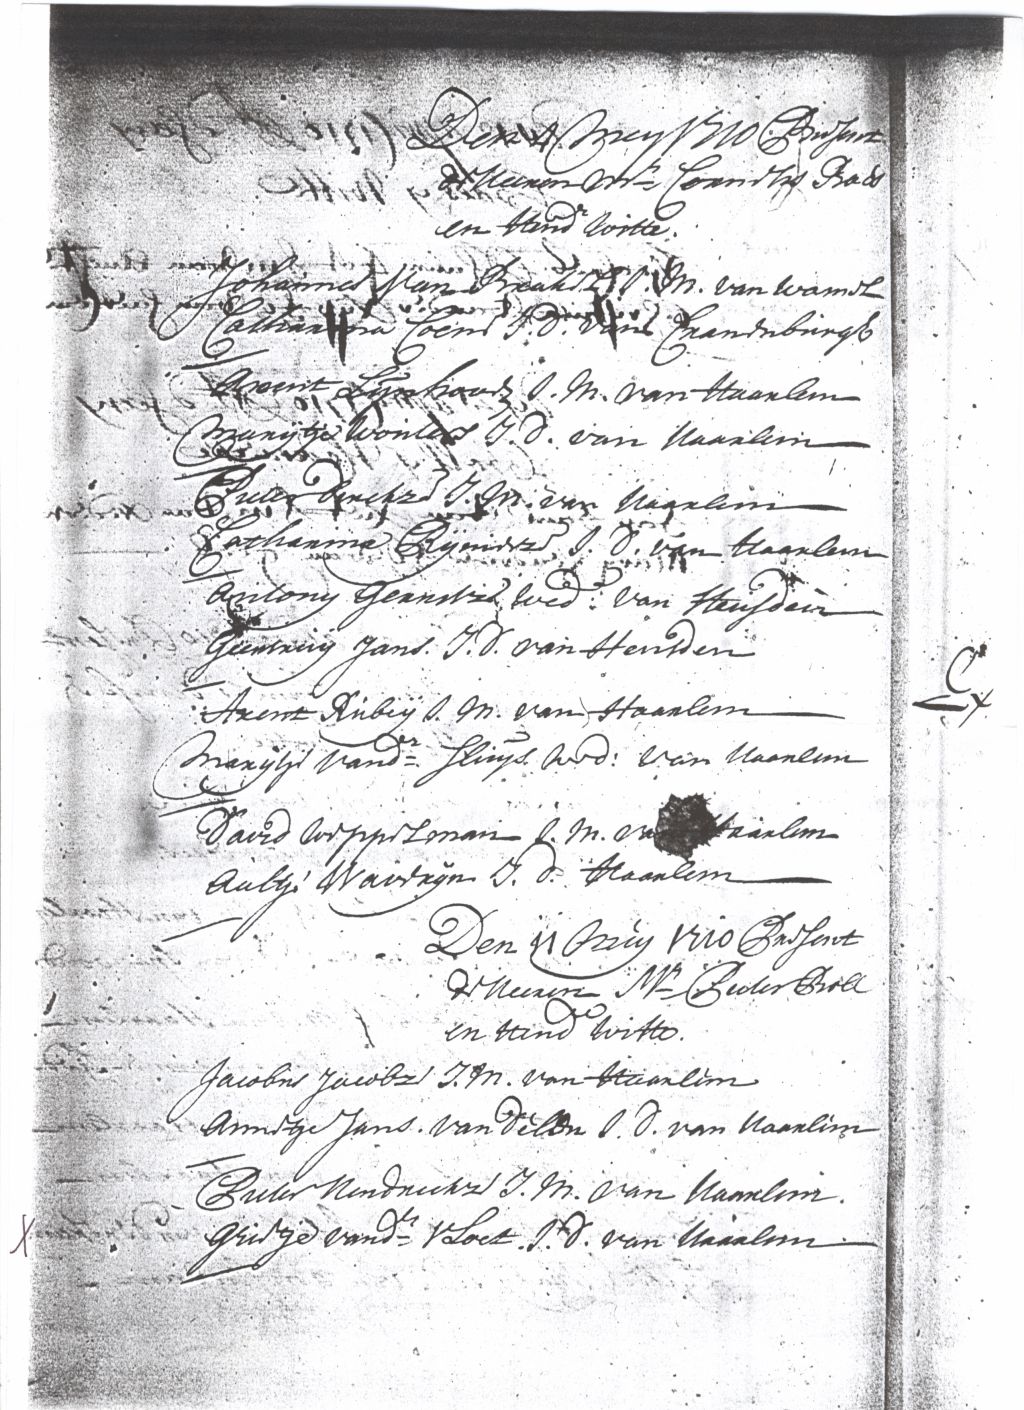 Den 4 Meij 1710 Present
de Heeren Mr Cornelis
en Hendr Witte.
Johannes van J. M. van
Catharina Coens J. D. van Crandenburgh
Arent J. M. van Haarlem
Marijtje Wouters J. D. van Haarlem
Pieter Dirckzs J. M. van Haarlem
Catharina J. D. van Haarlem
Antony Gerritze Wed: van Heusden
Geertruij Jans. J. D. van Heusden
Arent Rubeij J. M. van Haarlem
Marijtje vandr Sluijs. Wed: van Haarlem
David Wippelman J. M. van Haarlem
Aaltje J. D. Haarlem
Den 11 Meij 1710 Present
de Heeren Mr Pieter
en Hendr Witte.
Jacobus Jacobze J. M. van Haarlem
Annetje Jans. van Delden J. D. van Haarlem
Pieter Hendrickze J. M. van Haarlem.
Grietje vandr Vloet. J. D. van Haarlem